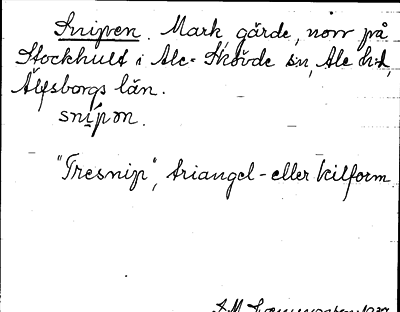 Snipen. Mark, gärde, norr på
Stockhult i Ale-Skövde sn, Ale hd,
Älfsborgs län.
snípən.
"Tresnip", triangel- eller kilform